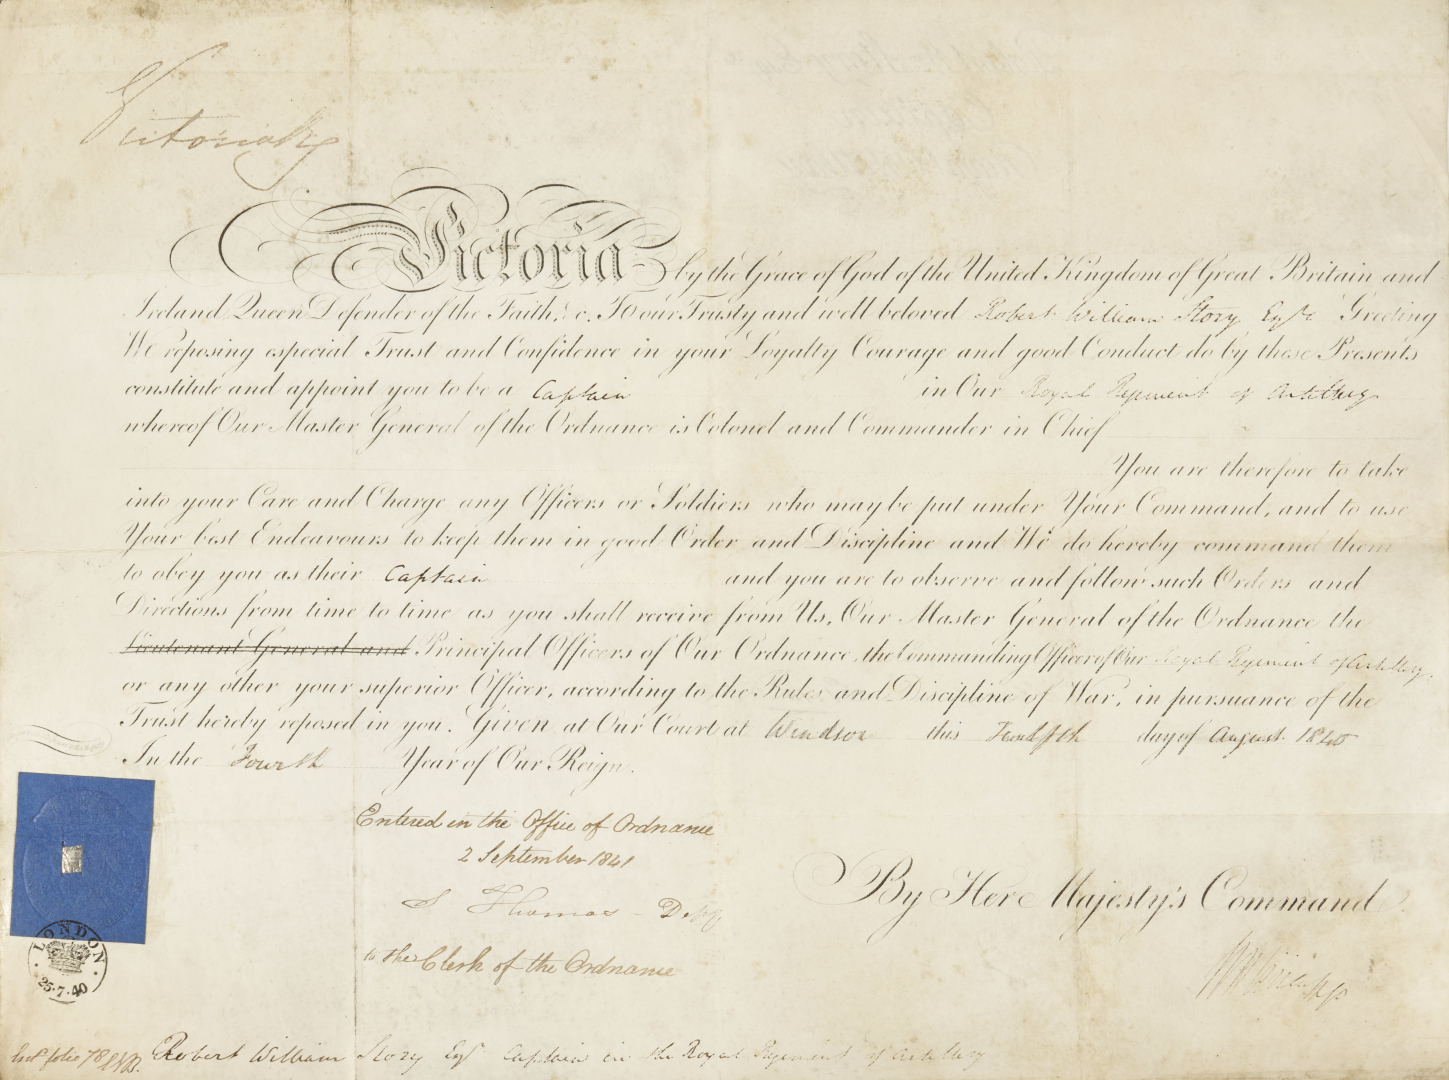 Victoria R
Victoria by the Grace of God of the United Kingdom of Great Britain and
Ireland Queen Defender of the Faith &c. To our Trusty and well beloved Robert William Story Esqre Greeting
We reposing especial Trust and Confidence in your Loyalty Courage and good Conduct do by these Presents
constitute and appoint you to be a Captain in Our Royal Regiment of Artillery
whereof Our Master General of the Ordnance is Colonel and Commander in Chief
You are therefore to take
into your Care and Charge any Officers or Soldiers who may be put under Your Command, and to use
Your best Endeavours to keep them in good Order and Discipline and We do hereby command them
to obey you as their Captain and you are to observe and follow such Orders and
Directions from time to time as you shall receive from Us, Our Master General of the Ordnance the
Lieutenant General and Principal Officers of Our Ordnance, the Commanding Officer of Our Royal Regiment of Artillery,
or any other your superior Officer, according to the Rules and Discipline of War, in pursuance of the
Trust hereby reposed in you. Given at Our Court at Windsor this Twelfth day of August 1840
In the Fourth Year of Our Reign.
Entered in the Office of Ordnance
2 September 1841
S Thomas - Depy
to the Clerk of the Ordnance
By Her Majesty's Command
LONDON
25.7.40
Entd folio 78
Robert William Story Esqr Captain in the Royal Regiment of Artillery